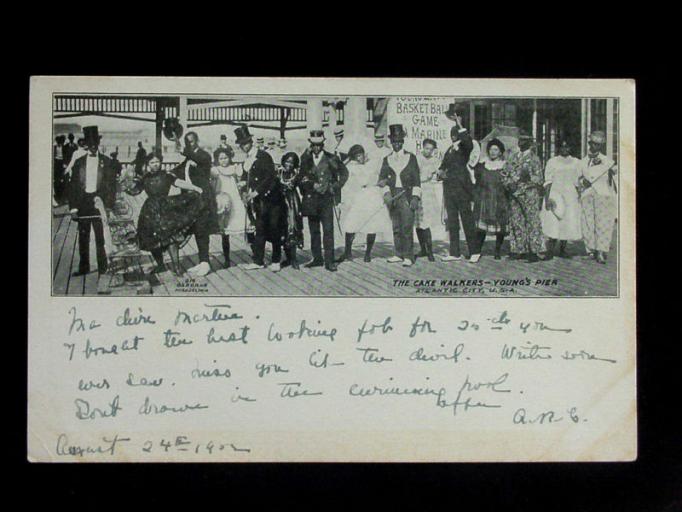 BASKET BALL
GAME
MARINE
THE CAKE WALKERS — YOUNG'S PIER
ATLANTIC CITY, U.S.A.
OSBORNE
PHILADELPHIA
Ma chère Martha.
I bought the best looking fob for 25 cts you
ever saw. Miss you like the devil. Write soon
Don't drown in the swimming pool.
A.R.C.
August 24th 1902